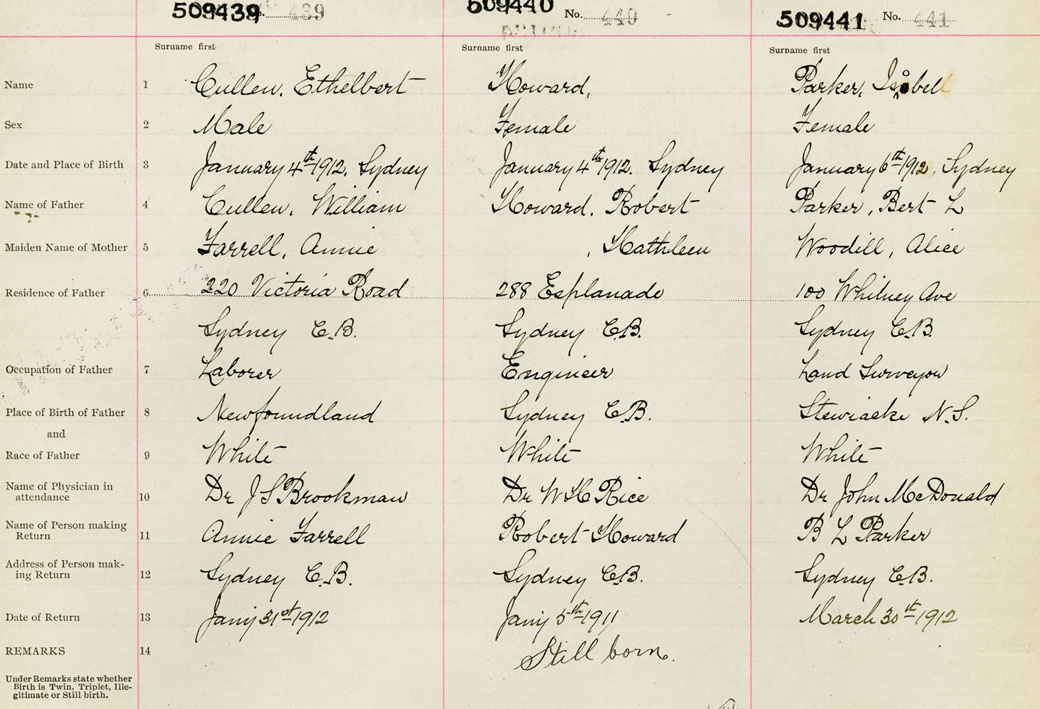 509439 No. 439 509440 No. 440 509441 No. 441
Surname first Surname first Surname first
Name 1 Cullen, Ethelbert Howard, Parker, Isabell
Sex 2 Male Female Female
Date and Place of Birth 3 January 4th 1912, Sydney January 4th 1912, Sydney January 6th 1912, Sydney
Name of Father 4 Cullen, William Howard, Robert Parker, Bert L
Maiden Name of Mother 5 Farrell, Annie , Kathleen Woodill, Alice
Residence of Father 6 220 Victoria Road 288 Esplanade 100 Whitney Ave
Sydney C.B. Sydney C.B. Sydney C.B.
Occupation of Father 7 Laborer Engineer Land Surveyor
Place of Birth of Father 8 Newfoundland Sydney C.B. Stewiacke N.S.
and
Race of Father 9 White White White
Name of Physician in
attendance 10 Dr J S Brookman Dr W H Rice Dr John McDonald
Name of Person making
Return 11 Annie Farrell Robert Howard B L Parker
Address of Person mak-
ing Return 12 Sydney C.B. Sydney C.B. Sydney C.B.
Date of Return 13 Jany 31st 1912 Jany 5th 1911 March 30th 1912
REMARKS 14 Still born.
Under Remarks state whether
Birth is Twin, Triplet, Ille-
gitimate or Still-birth.